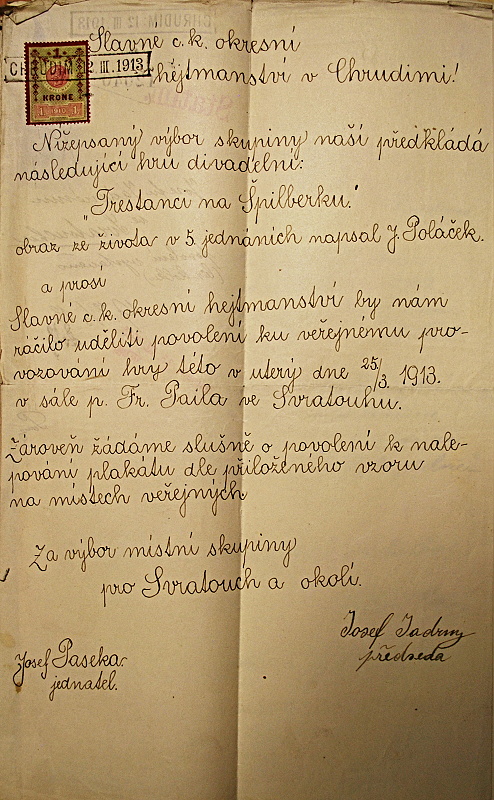 CHRUDIM 12 III 1913
Slavné c. k. okresní
CHRUDIM 12. III. 1913
1
KRONE
1 1
hejtmanství v Chrudimi!
Nížepsaný výbor skupiny naší předkládá
následující hru divadelní:
„Trestanci na Špilberku."
obraz ze života v 5. jednáních napsal J. Poláček.
a prosí
Slavné c. k. okresní hejtmanství by nám
ráčilo uděliti povolení ku veřejnému pro-
vozování hry této v uterý dne 25/3. 1913.
v sále p. Fr. Paila ve Svratouhu.
Zároveň žádáme slušně o povolení k nale-
pování plakátu dle přiloženého vzoru
na místech veřejných
Za výbor místní skupiny
pro Svratouch a okolí.
Josef
předseda
Josef Paseka
jednatel.